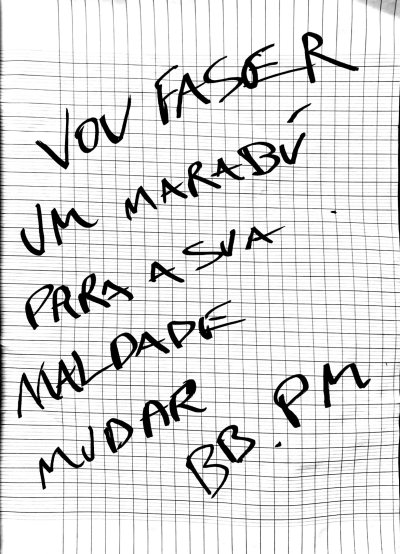 VOU FASER
UM MARABÚ
PARA A SUA
MALDADE
MUDAR
BB.PM